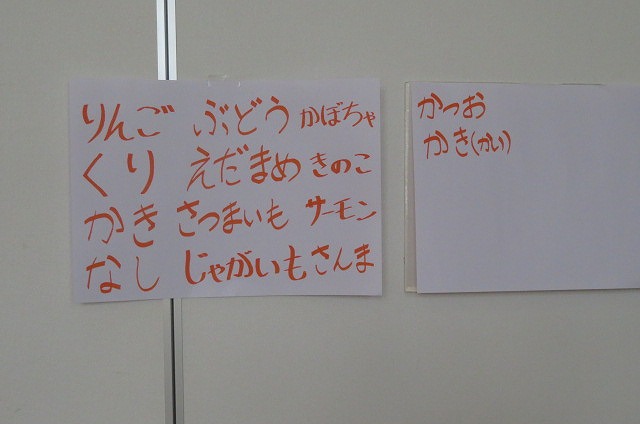 りんご ぶどう かぼちゃ
くり えだまめ きのこ
かき さつまいも サーモン
なし じゃがいも さんま
かつお
かき(かい)